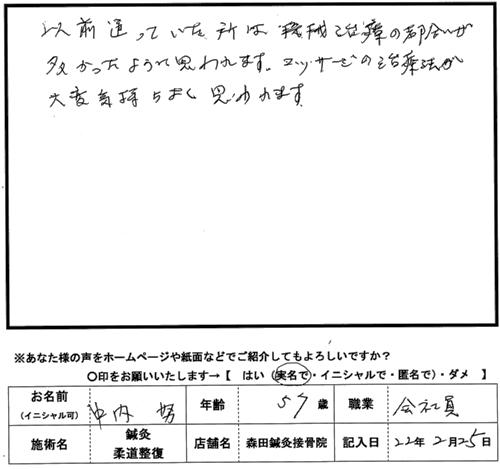 以前通っていた所は機械治療の部分が
多かったように思われます。マッサージの治療法が
大変気持ちよく思われます
※あなた様の声をホームページや紙面などでご紹介してもよろしいですか?
〇印をお願いいたします→【 はい(実名で・イニシャルで・匿名で)・ダメ 】
お名前
(イニシャル可)
中内 努
年齢
57歳
職業
会社員
施術名
鍼灸
柔道整復
店舗名
森田鍼灸接骨院
記入日
22年 2月25日